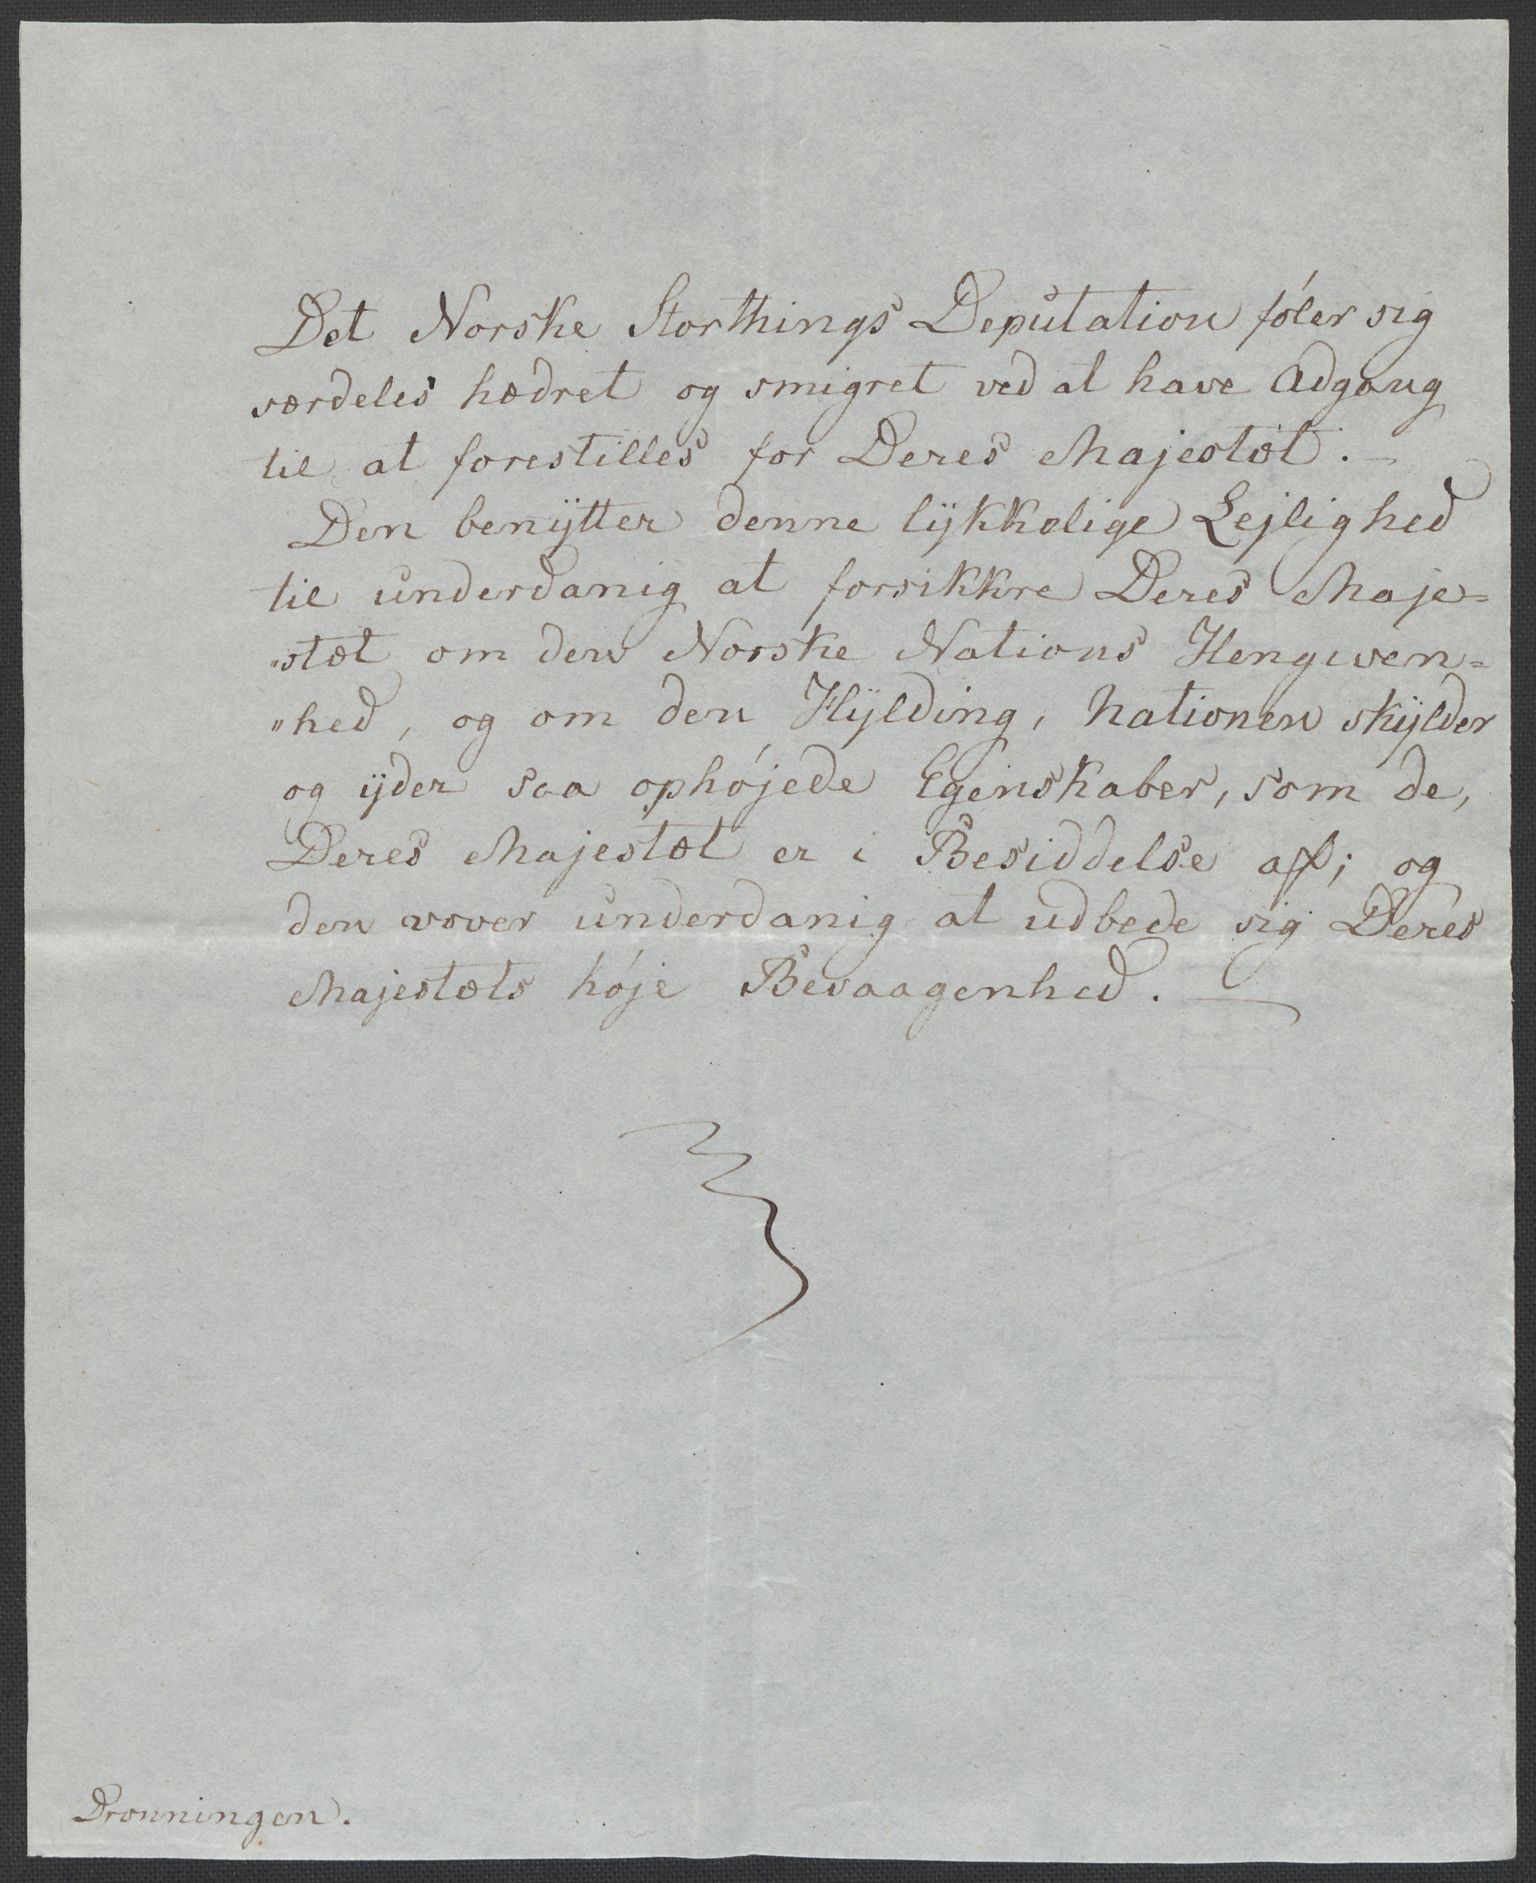 Det Norske Storthings Deputation føler sig
særdeles hædret og smigret ved at have Adgang
til at forestilles for Deres Majestæt. —
Den benÿtter denne lÿkkelige Lejlighed
til underdanig at forsikkre Deres Maje=
"stæt om den Norske Nations Hengiven=
"hed, og om den Hÿlding, Nationen skÿlder
og ÿder saa ophøjede Egenskaber, som de,
Deres Majestæt er i Besiddelse af; og
den vover underdanig at udbede sig Deres
Majestæts høje Bevaagenhed. —
Dronningen.